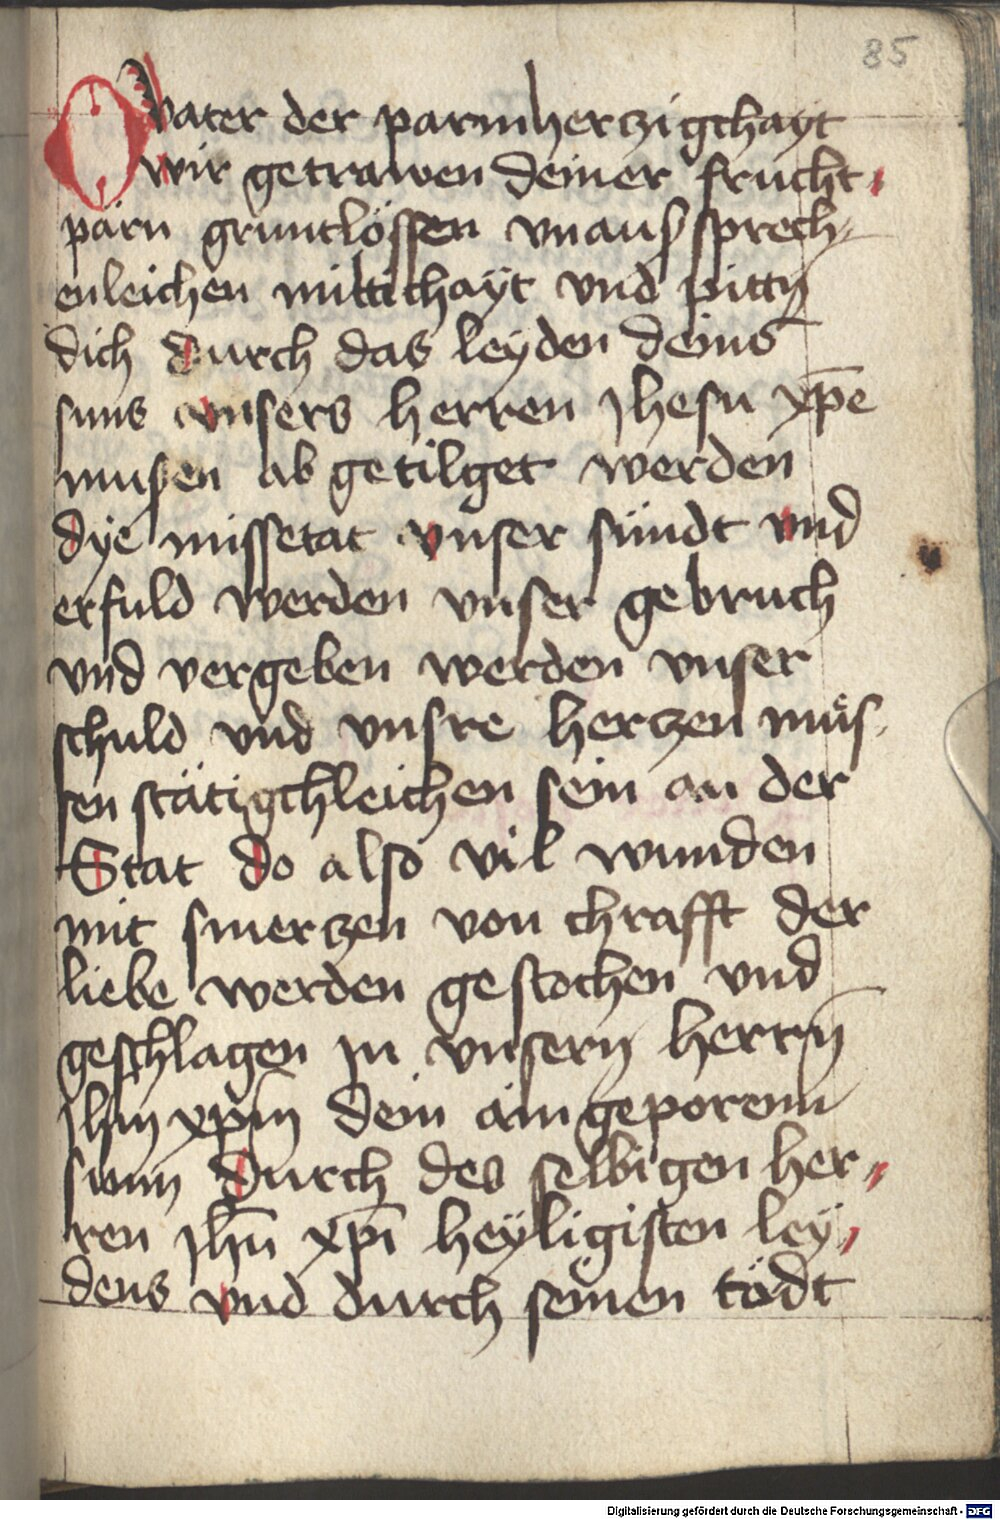 85
O vater der parmherczigchayt
wir getrawen deiner frucht
pärn gruntlössen vnaussprech
enleichen miltichayt vnd pitty̅
dich durch das leyden deins
suns vnsers herren Jhesu xp̅e
musen ab getilget werden
dye missetat vnser sündt vnd
erfuld werden vnser gebruch
vnd vergeben werden vnser
schuld vnd vnsre herczen müs
sen stätigchleichen sein an der
Stat do also vil wunden
mit smerczen von chrafft der
liebe werden gestochen vnd
geschlagen in vnsern herrn̅
Jhm xp̅m dein aingeporenn
sunn durch des selbigen her
ren Jhū xp̅i heyligisten ley
dens vnd durch seinen tödt
Digitalisierung gefördert durch die Deutsche Forschungsgemeinschaft - DFG